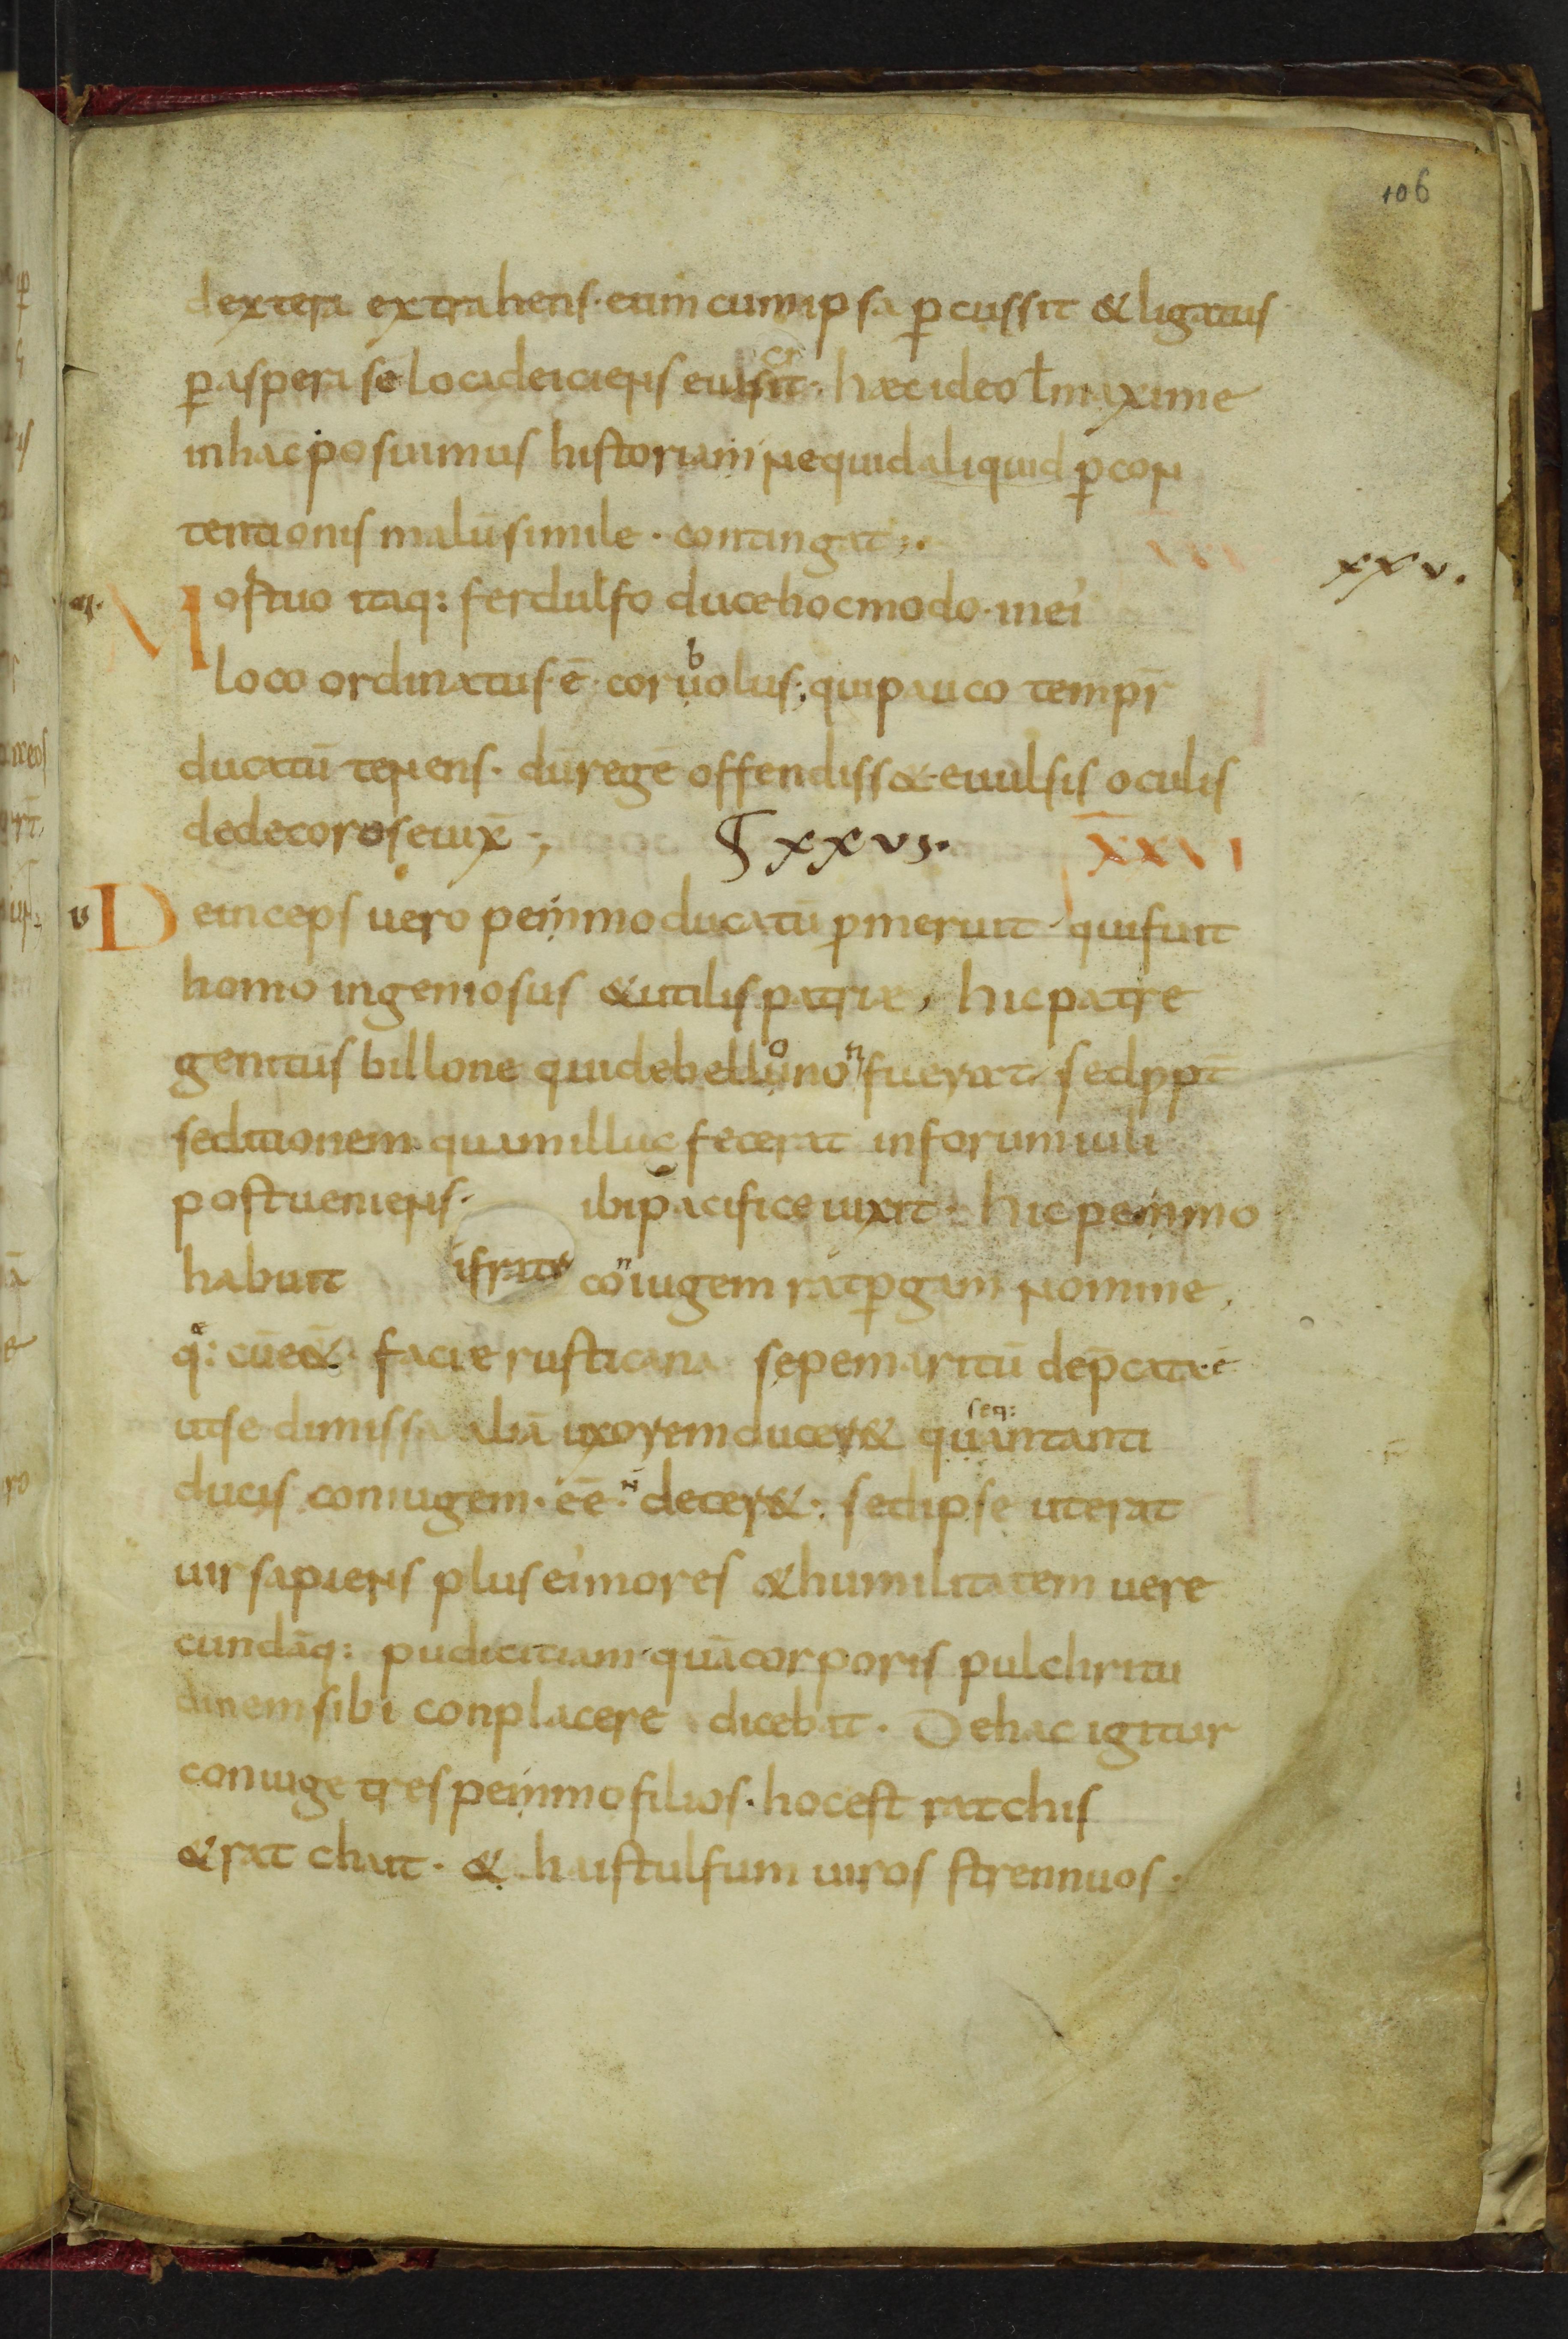 106
dextera extrahens· eum cum ipsa ꝑcussit & ligatus
ꝑ aspera se loca deiciens euasit· hæc ideo ł maxime
in hac posuimus historiam ne quid aliquid ꝑ con
tentionis malū simile · contingat ;·
xxv.
Mostuo itaq: ferdulfo duce hoc modo· in ei
loco ordinatus· ē· coruolus; qui pauco tempr̄
ducatū tenens· dū regē offendiss& euulsis oculis
dedecorose uix̄ ;
xxvi.
XXVI
Deinceps uero pemmo ducatū ꝓmeruit· qui fuit
homo ingeniosus & utilis patriæ, hic patre
genitus billone qui de belluno fuerat· sed ꝓpt̄
seditionem quam illuc fecerat in forum iuli
post ueniens· ibi pacifice uixit· hic pemmo
habuit coniugem ratꝑgam nomine,
q: cū e&̄· faciæ rusticana sepe maritū dep̄cata· ē
ut se dimissa aliā uxorem ducer& quā tanti
seq:
ducis coniugem· eē· n̄ decer&· sed ipse ut erat
uir sapiens plus ei mores & humilitatem uere
cundāq: pudicitiam quā corporis pulchritu
dinem sibi conplacere dicebat· De hac igitur
coniuge tres pemmo filios· hoc est ratchis
& rat chait· & haistulfum uiros strennuos·